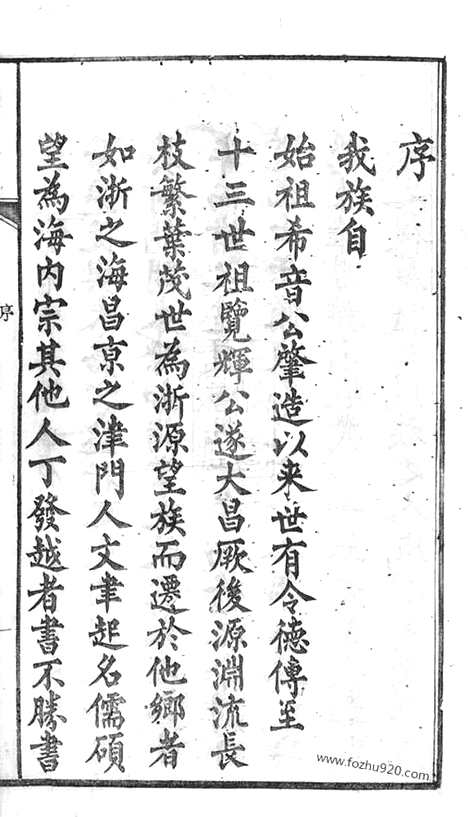 序
我族自
始祖希音公肇造以来世有令德傳至
十三世祖覽輝公遂大昌厥後源淵流長
枝繁葉茂世為浙源望族而遷於他鄉者
如浙之海昌京之津門人文聿起名儒碩
望為海内宗其他人丁發越者書不勝書
序
www.fozhu920.com